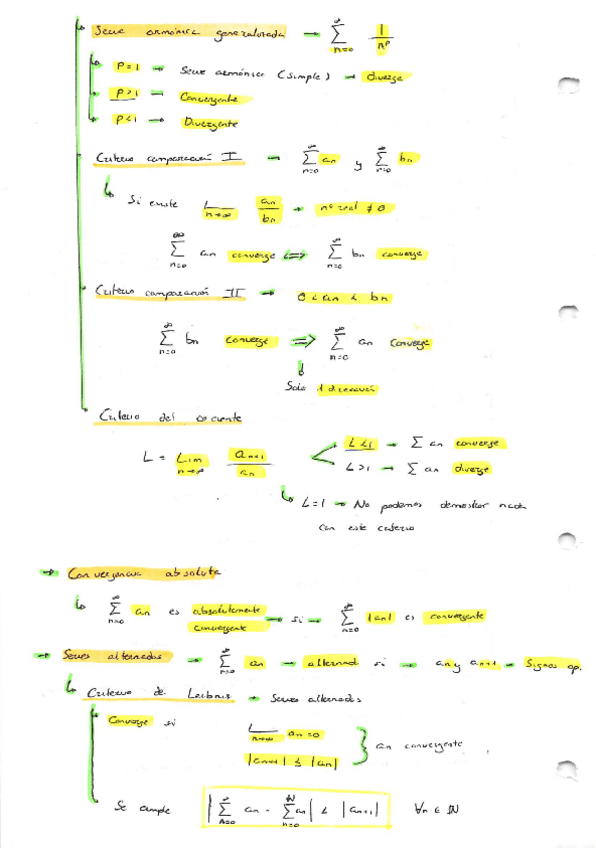 Serie armónica generalizada → ∞ Σ n=0 1/nᵖ
P=1 → Serie armónica (simple) → diverge
P>1 → Convergente
P<1 → Divergente
Criterio comparación I → ∞ Σ n=0 an y ∞ Σ n=0 bn
Si existe L n→∞ an/bn → nº real ≠ 0
∞ Σ n=0 an converge <=> ∞ Σ n=0 bn converge
Criterio comparación II → 0 < an < bn
∞ Σ n=0 bn converge => ∞ Σ n=0 an converge
Solo 1 dirección
Criterio del cociente
L = Lim n→∞ an+1/an
L<1 → Σ an converge
L>1 → Σ an diverge
L=1 → No podemos demostrar nada
con este criterio
→ Convergencia absoluta
∞ Σ n=0 an es absolutamente convergente → si → ∞ Σ n=0 |an| es convergente
→ Series alternadas → ∞ Σ n=0 an → alternad si → an y an+1 → Signos op.
Criterio de Leibnis → Series alternadas
Converge si L n→∞ an=0
|an+1| ≤ |an| } an convergente
Se cumple | ∞ Σ n=0 an - N Σ n=0 an | < |an+1| ∀n ∈ ℕ